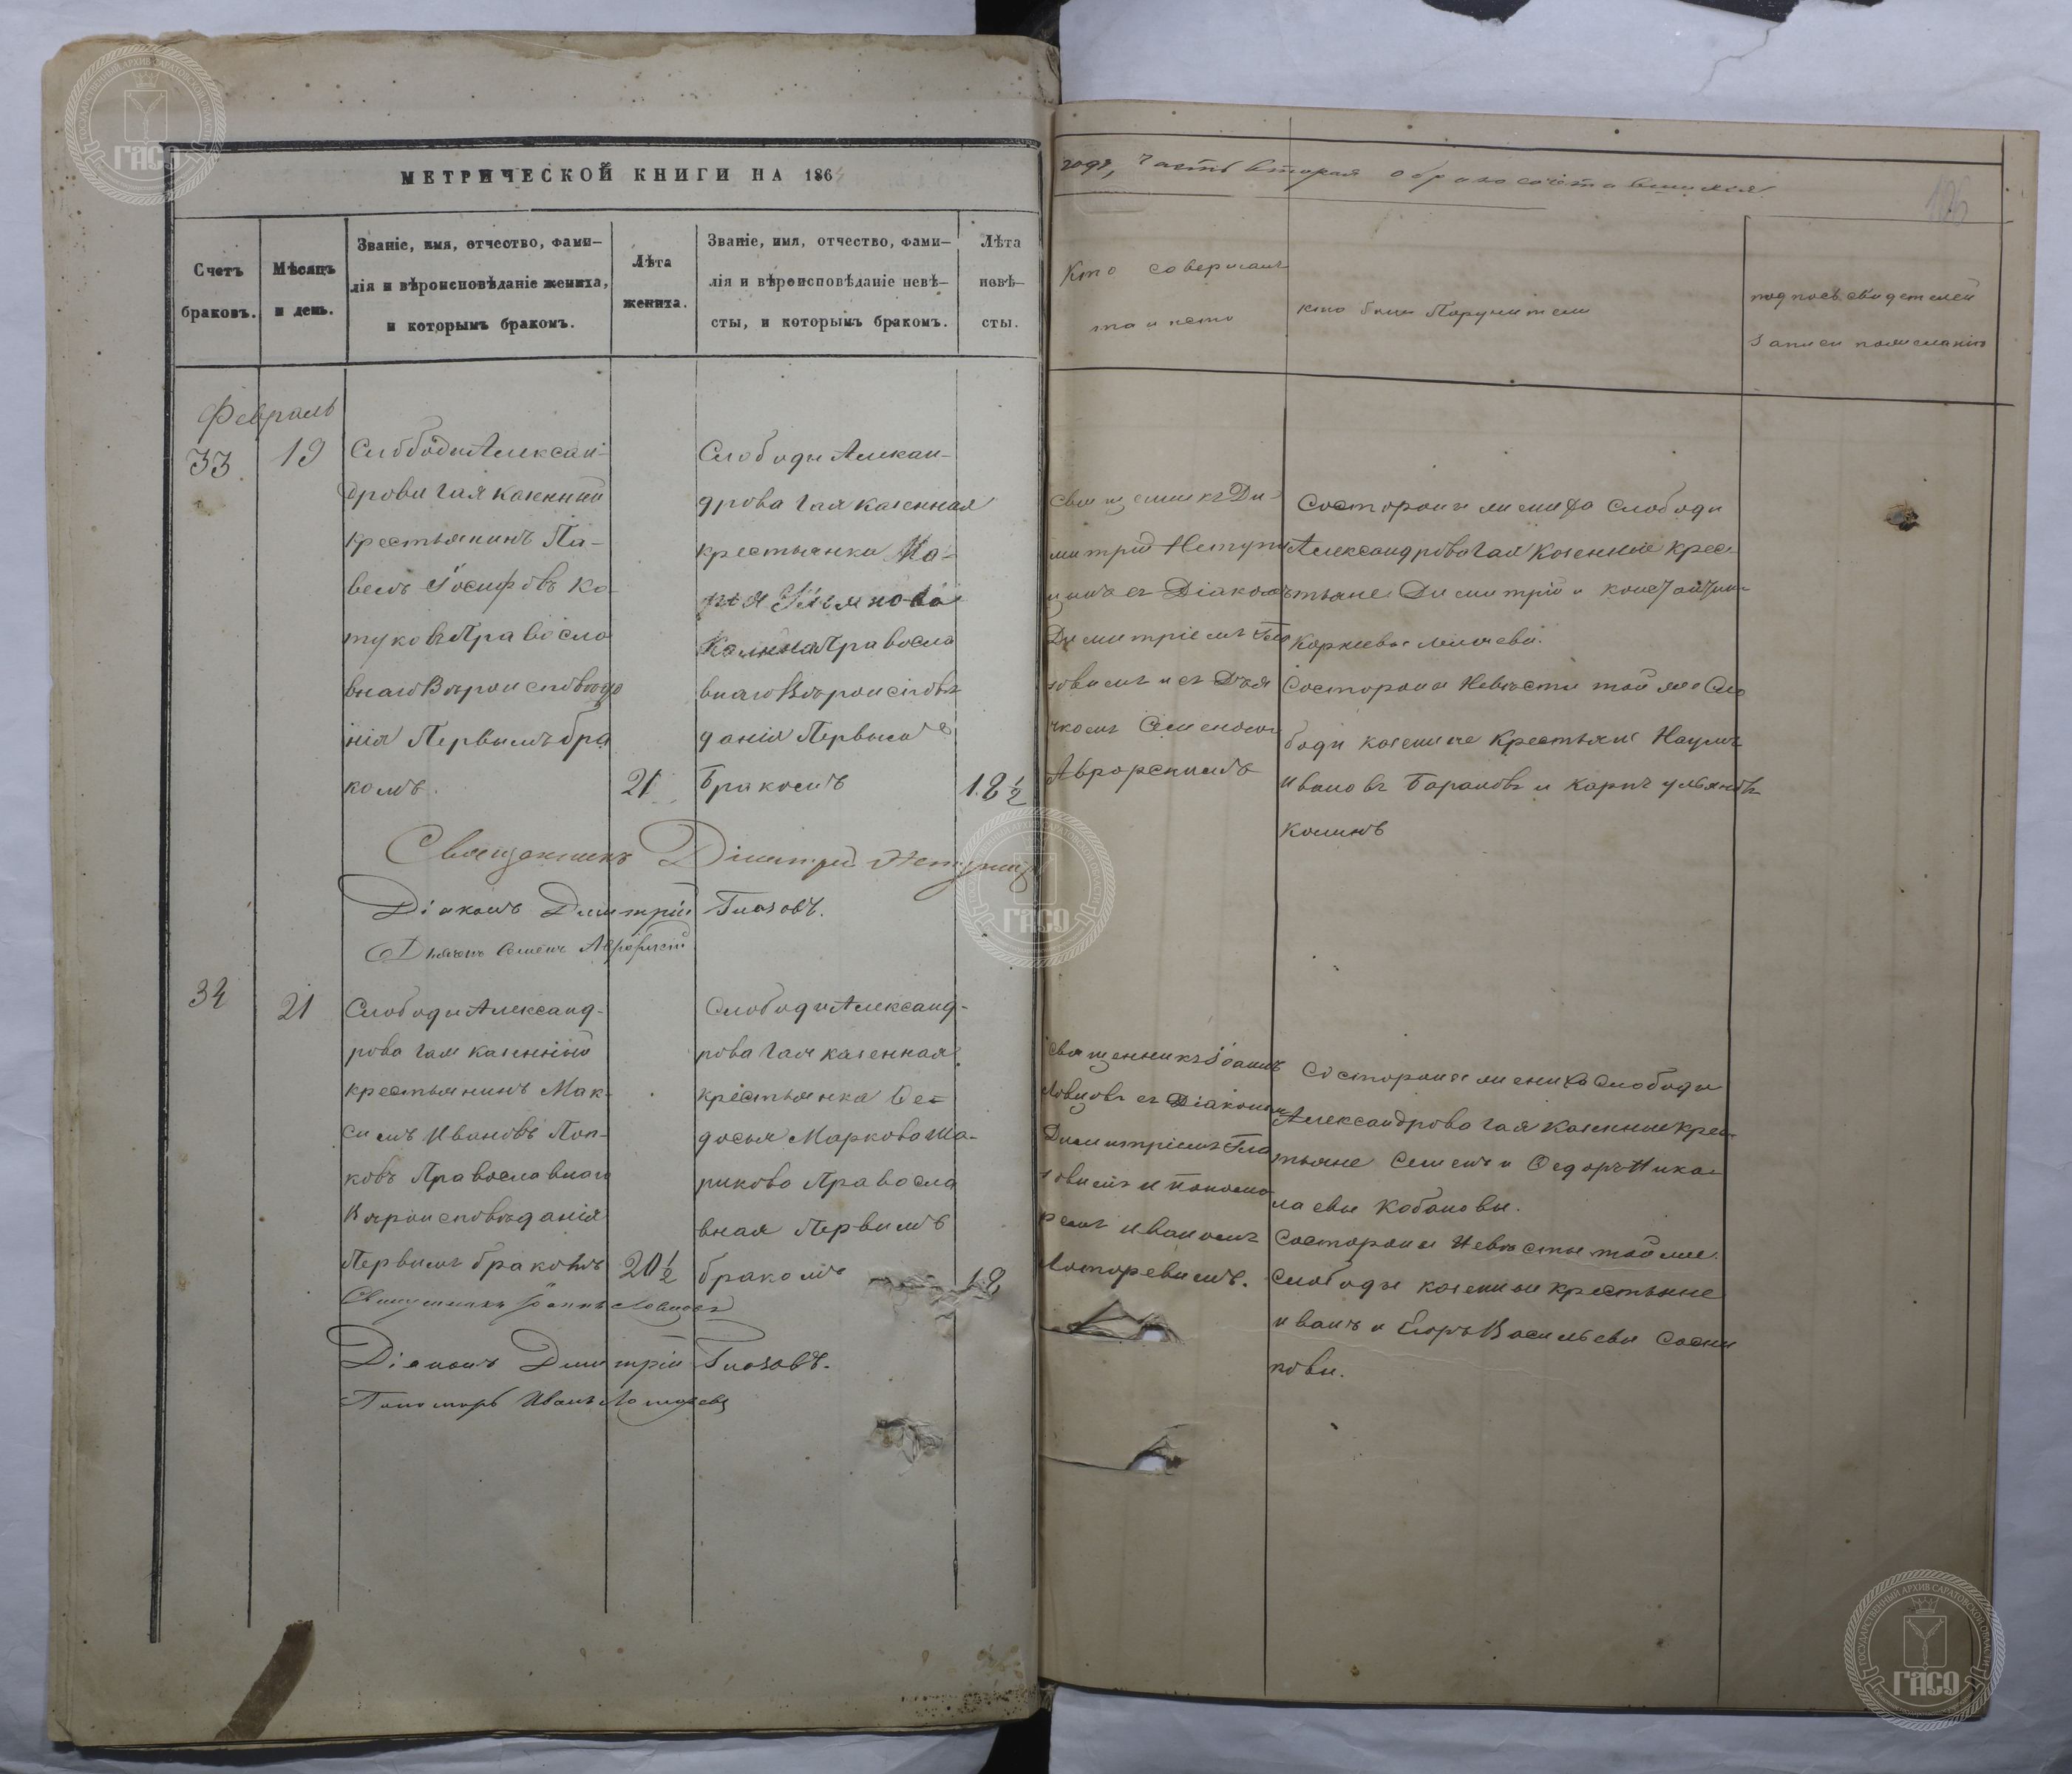 МЕТРИЧЕСКОЙ КНИГИ НА 186
года, часть вторая о бракосочетавшихся
Счетъ
браковъ.
Мѣсяцъ
и день.
Званіе, имя, отчество, фами-
лія и вѣроисповѣданіе жениха,
и которымъ бракомъ.
Лѣта
жениха.
Званіе, имя, отчество, фами-
лія и вѣроисповѣданіе невѣ-
сты, и которымъ бракомъ.
Лѣта
невѣ-
сты.
Кто совершалъ
кто были Поручители
подпись свидетелей
записи по желанію
Февраль
33
19
Слободы Алексан-
дрова Гая казенный
крестьянинъ Па-
велъ Іосифовъ Ко-
туковъ Правосла
внаго Вѣроисповѣда
нія Первымъ бра
комъ.
21
Слободы Алекан-
дрова Гая казенная
крестьянка Ма-
рья Ульянова
Калина Правосла
внаго Вѣроисповѣ
данія Первымъ
Бракомъ
18 ½
Священникъ Ди-
митрій
съ Діакономъ
Димитріемъ Гла
зовымъ и съ Дья
чкомъ Семеномъ
Аврорскимъ
Состороны жениха Слободы
Александрова Гая Казенные крес-
тьяне Димитрій и Констаитин
Корнеевы
Состороны Невѣсты той же Сло
боды казенные Крестьяне Наумъ
Ивановъ Барановъ и Карпъ Ульяновъ
Калинъ
Священникъ Димитрій
Діаконъ Димитрій Глазовъ.
Дьячекъ Семенъ Аврорскій
34
21
Слободы Александ-
рова Гая казенный
крестьянинъ Мак-
симъ Ивановъ Поп-
ковъ Православнаго
Вѣроисповѣданія
Первымъ бракомъ
20 ½
Слободы Александ-
рова Гая казенная
крестьянка Ѳе-
досья Маркова Ша-
рикова Правосла
вная Первымъ
бракомъ
18
Священникъ Іоаннъ
Ловцовъ съ Діакономъ
Димитріемъ Гла
зовымъ и понома
ремъ Иваномъ
Лоторевымъ.
Состороны жениха Слободы
Александрова Гая Казенные крес-
тьяне Семенъ и Ѳедоръ Нико-
лаевы Кобановы.
Состороны Невѣсты той же
Слободы казенные крестьяне
Иванъ и Егоръ Васильевы Сосни
новы.
Священникъ Іоаннъ Ловцовъ
Діаконъ Димитрій Глазовъ.
Пономарь Иванъ Лоторевъ
ГОСУДАРСТВЕННЫЙ АРХИВ САРАТОВСКОЙ ОБЛАСТИ
ГАСО
ГОСУДАРСТВЕННЫЙ АРХИВ САРАТОВСКОЙ ОБЛАСТИ
ГАСО
ГОСУДАРСТВЕННЫЙ АРХИВ САРАТОВСКОЙ ОБЛАСТИ
ГАСО